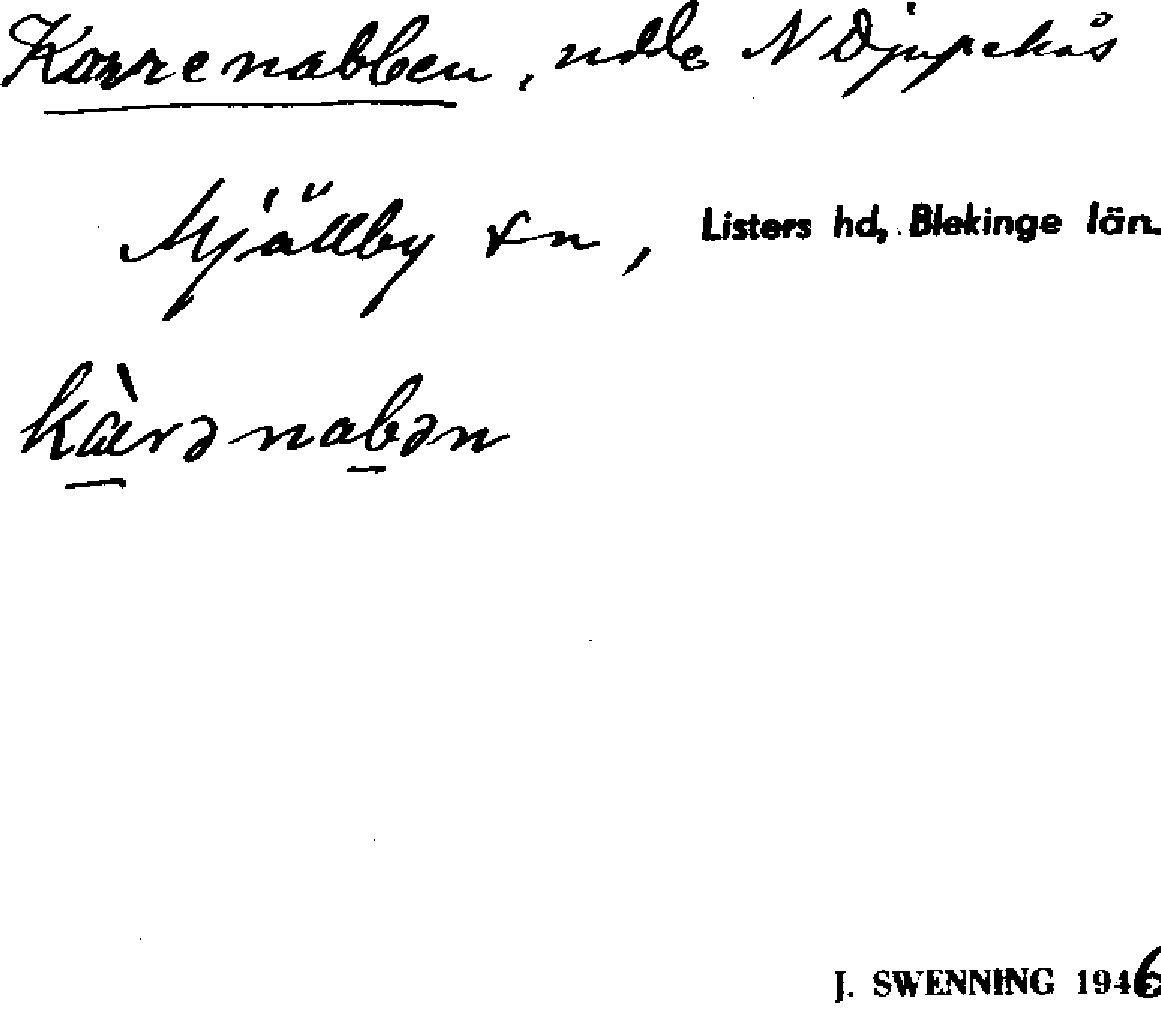 Korrenabben, udde N Djupekås
Mjällby sn, Listers hd, Blekinge län.
kàrə nabən
J. SWENNING 1946